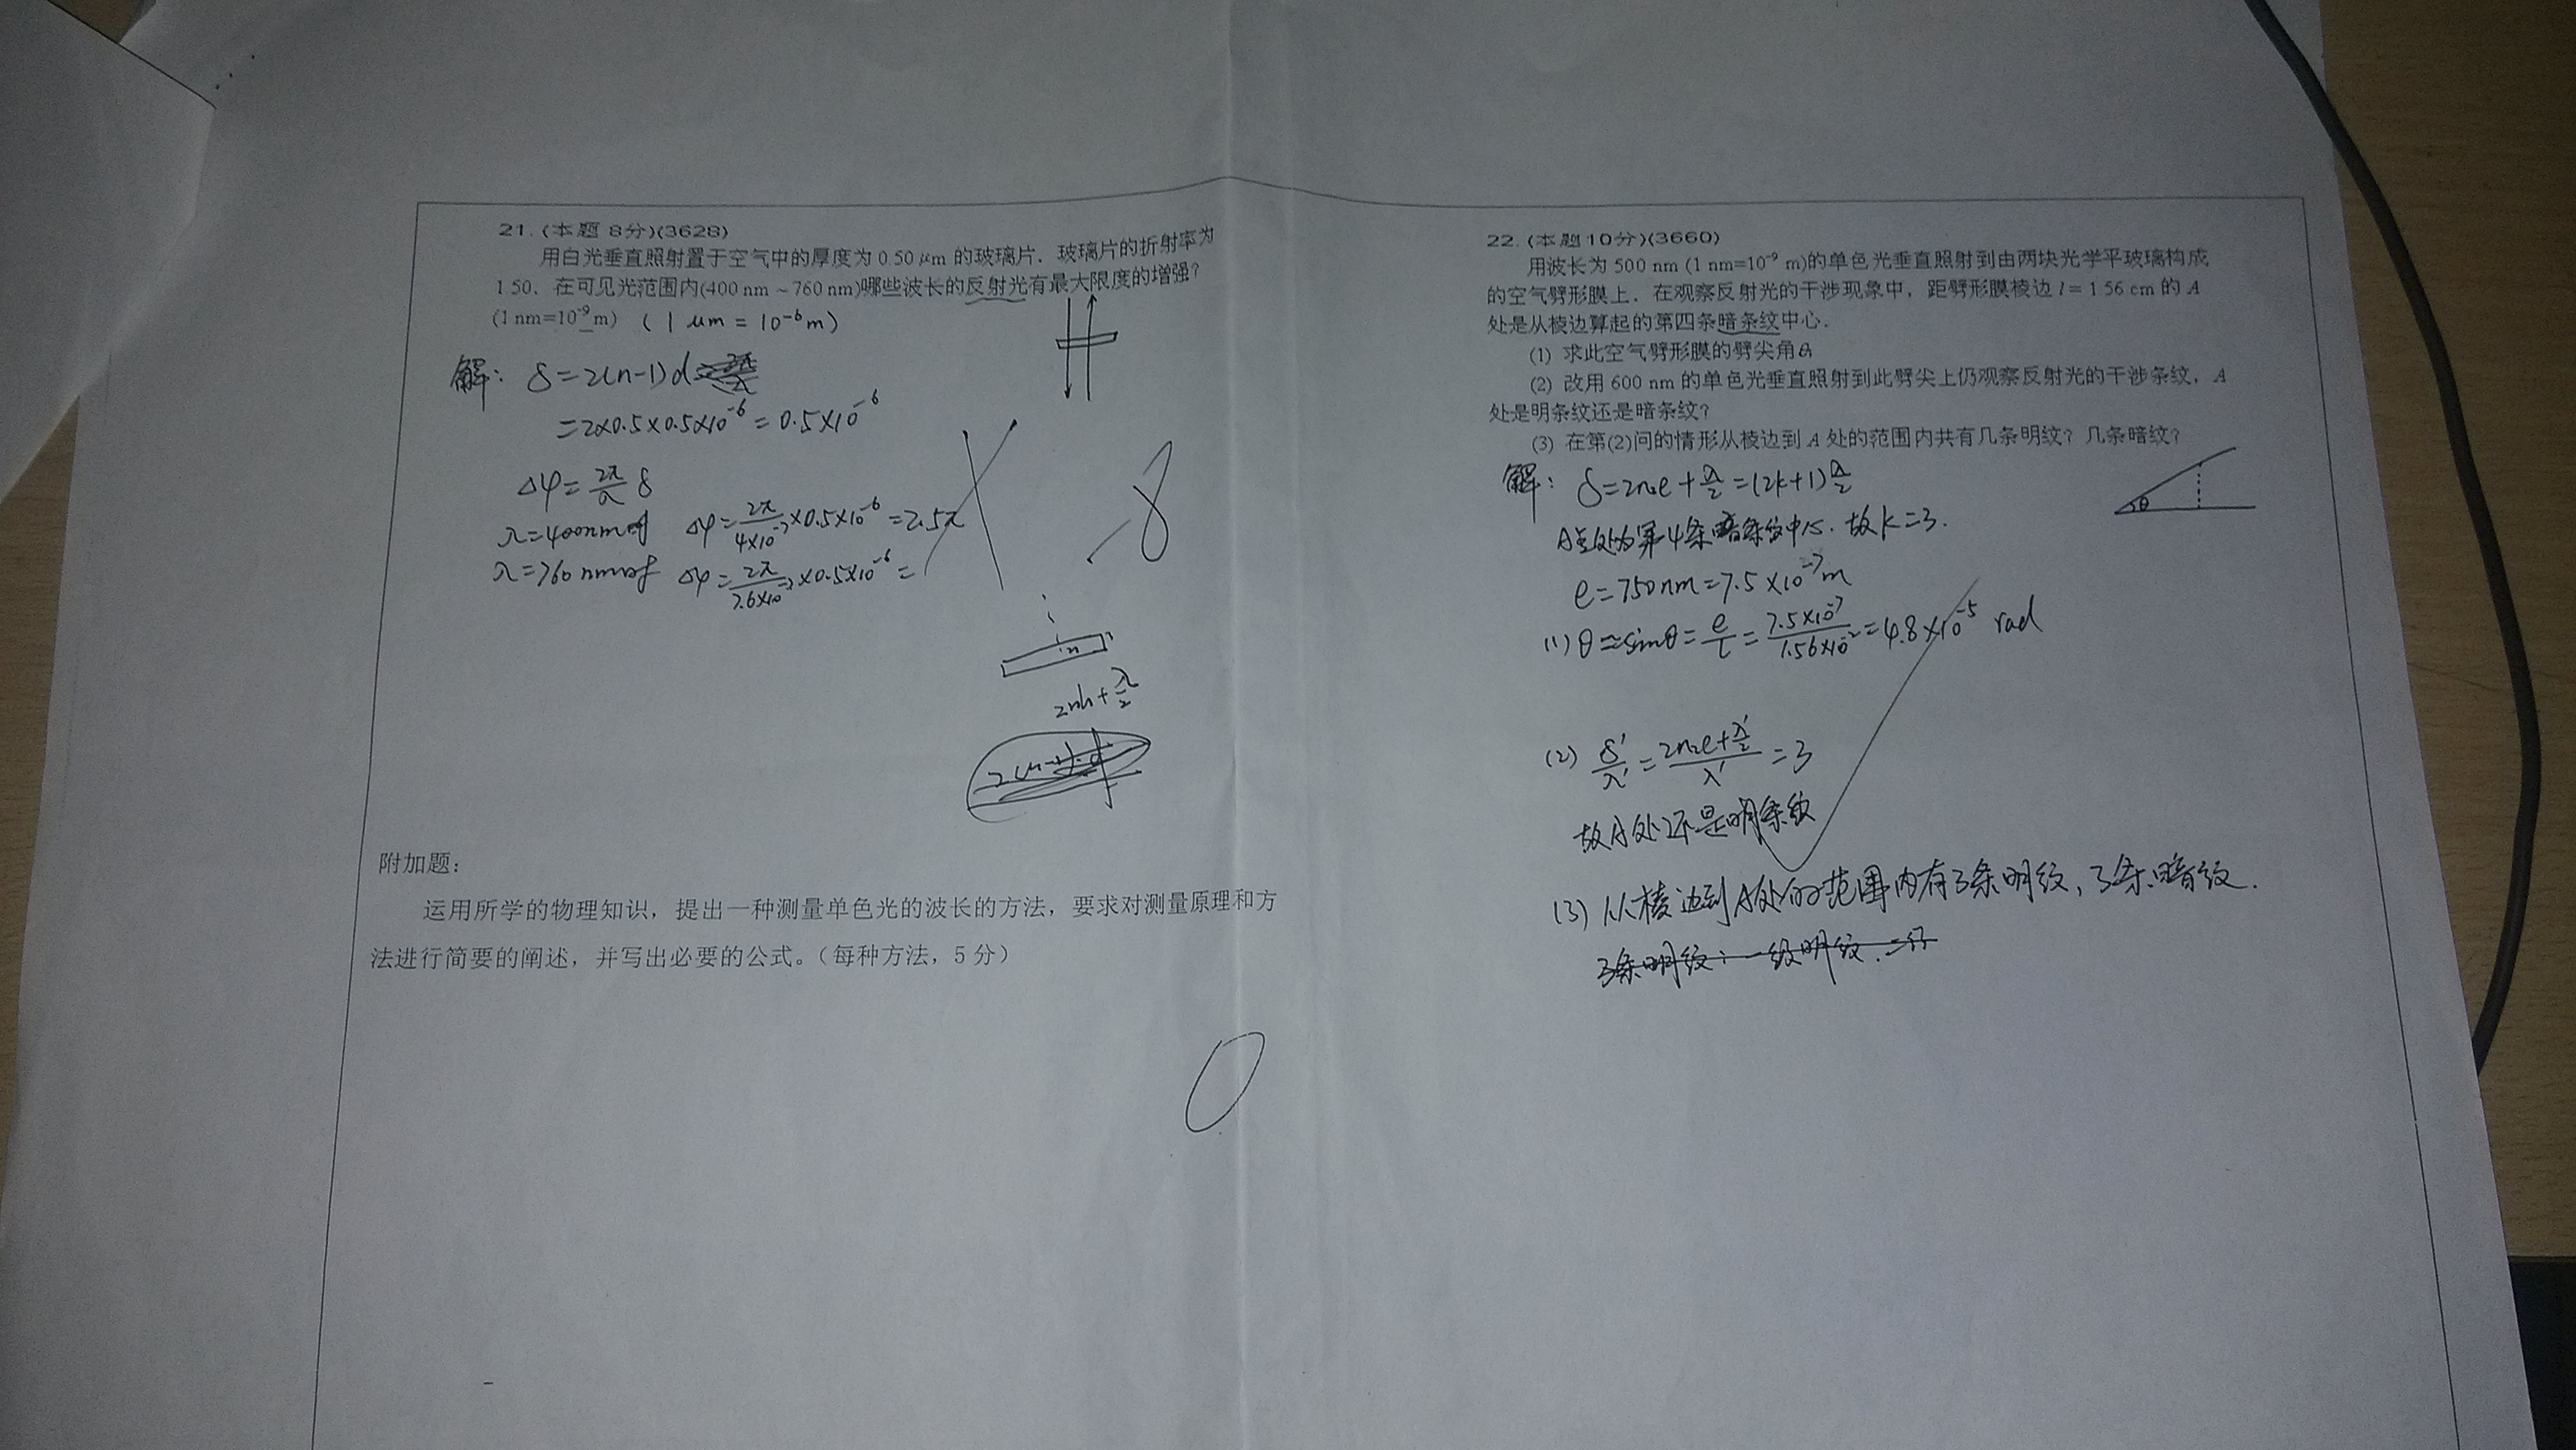 21. (本题 8分)(3628)
用白光垂直照射置于空气中的厚度为 0.50 μm 的玻璃片. 玻璃片的折射率为
1.50. 在可见光范围内(400 nm ~ 760 nm)哪些波长的反射光有最大限度的增强?
(1 nm=10⁻⁹ m) (1 μm = 10⁻⁶ m)
解: δ=2(n-1)d
=2×0.5×0.5×10⁻⁶ = 0.5×10⁻⁶
Δφ= 2π/λ δ
λ=400nm时 Δφ= 2π/4×10⁻⁷ ×0.5×10⁻⁶ =2.5π
λ=760nm时 Δφ= 2π/7.6×10⁻⁷ ×0.5×10⁻⁶ =
-8
n
2nh+λ/2
附加题:
运用所学的物理知识，提出一种测量单色光的波长的方法，要求对测量原理和方
法进行简要的阐述，并写出必要的公式。（每种方法，5 分）
0
22. (本题10分)(3660)
用波长为 500 nm (1 nm=10⁻⁹ m)的单色光垂直照射到由两块光学平玻璃构成
的空气劈形膜上. 在观察反射光的干涉现象中, 距劈形膜棱边 l= 1.56 cm 的 A
处是从棱边算起的第四条暗条纹中心.
(1) 求此空气劈形膜的劈尖角θ
(2) 改用 600 nm 的单色光垂直照射到此劈尖上仍观察反射光的干涉条纹, A
处是明条纹还是暗条纹?
(3) 在第(2)问的情形从棱边到 A 处的范围内共有几条明纹? 几条暗纹?
θ
解: δ=2n₂e+λ/2=(2k+1)λ/2
A点处为第4条暗条纹中心. 故k=3.
e=750nm=7.5×10⁻⁷m
(1) θ≈sinθ= e/l = 7.5×10⁻⁷/1.56×10⁻² =4.8×10⁻⁵ rad
(2) δ'/λ' = 2n₂e+λ'/2 / λ' =3
故A处还是明条纹
(3) 从棱边到A处的范围内有3条明纹, 3条暗纹.
3条明纹: 一级明纹.